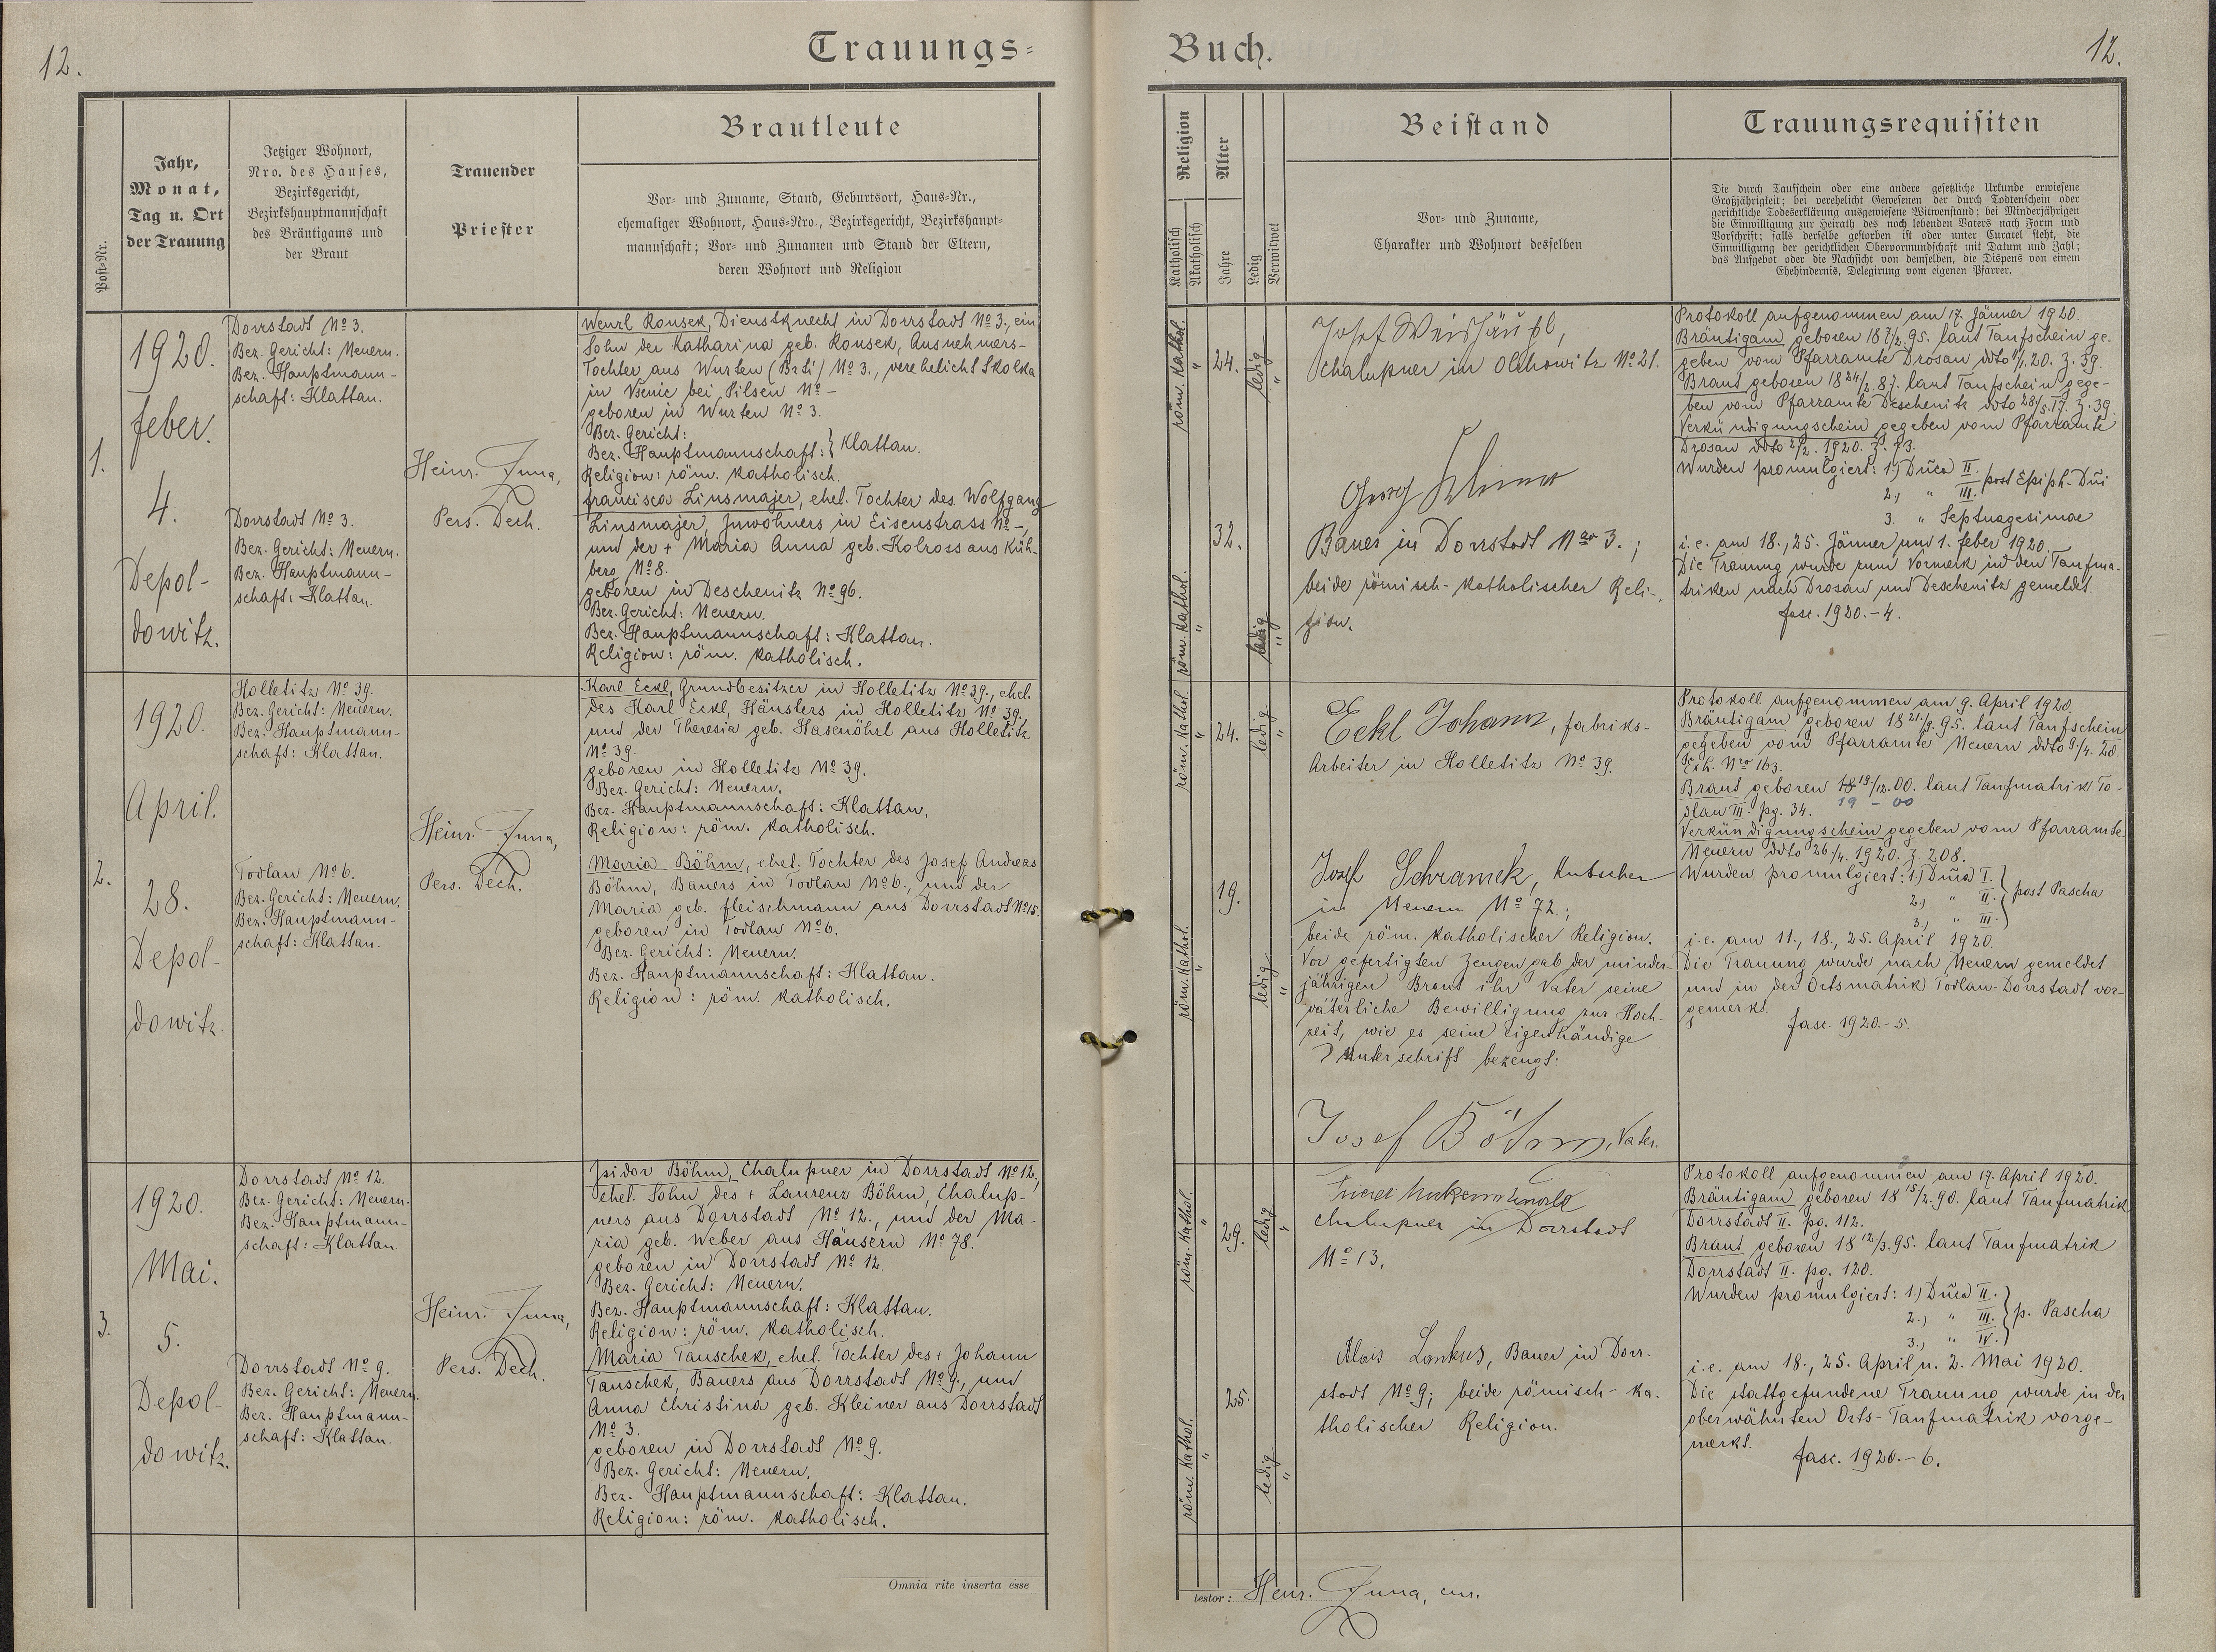 12.
Trauungs=
Post-Nr.
Jahr,
Monat,
Tag u. Ort
der Trauung
Jetziger Wohnort,
Nro. des Hauses,
Bezirksgericht,
Bezirkshauptmannschaft
des Bräutigams und
der Braut
Trauender
Priester
Brautleute
Vor- und Zuname, Stand, Geburtsort, Haus-Nr.,
ehemaliger Wohnort, Haus-Nro., Bezirksgericht, Bezirkshaupt-
mannschaft; Vor- und Zunamen und Stand der Eltern,
deren Wohnort und Religion
1.
1920.
Feber.
4.
Depol-
dowitz.
Dorrstadt No 3.
Bez. Gericht: Neuern.
Bez. Hauptmann-
schaft: Klattau.
Dorrstadt No 3.
Bez. Gericht: Neuern.
Bez. Hauptmann-
schaft: Klattau.
Heinr. Juna,
Pers. Dech.
Wenzl Kousek, Dienstknecht in Dorrstadt No 3., ein
Sohn der Katharina geb. Kousek, Ausnehmers-
Tochter aus Wurten (Brti) No 3., verehelicht Skolka
in Vsenic bei Pilsen No -
geboren in Wurten No 3.
Bez. Gericht:
Bez. Hauptmannschaft: } Klattau.
Religion: röm. katholisch.
Francisca Linsmajer, ehel. Tochter des Wolfgang
Linsmajer, Inwohners in Eisenstrass No -,
und der + Maria Anna geb. Kolross aus Küh-
berg No 8.
geboren in Deschenitz No 96.
Bez. Gericht: Neuern.
Bez. Hauptmannschaft: Klattau.
Religion: röm. katholisch.
2.
1920.
April.
28.
Depol-
dowitz.
Holletitz No 39.
Bez. Gericht: Neuern.
Bez. Hauptmann-
schaft: Klattau.
Todlau No 6.
Bez. Gericht: Neuern.
Bez. Hauptmann-
schaft: Klattau.
Heinr. Juna,
Pers. Dech.
Karl Eckl, Grundbesitzer in Holletitz No 39., ehel.
des Karl Eckl, Häuslers in Holletitz No 39.,
und der Theresia geb. Hasenöhrl aus Holletitz
No 39.
geboren in Holletitz No 39.
Bez. Gericht: Neuern.
Bez. Hauptmannschaft: Klattau.
Religion: röm. katholisch.
Maria Böhm, ehel. Tochter des Josef Andreas
Böhm, Bauers in Todlau No 6., und der
Maria geb. Fleischmann aus Dorrstadt No 15.
geboren in Todlau No 6.
Bez. Gericht: Neuern.
Bez. Hauptmannschaft: Klattau.
Religion: röm. katholisch.
3.
1920.
Mai.
5.
Depol-
dowitz.
Dorrstadt No 12.
Bez. Gericht: Neuern.
Bez. Hauptmann-
schaft: Klattau.
Dorrstadt No 9.
Bez. Gericht: Neuern.
Bez. Hauptmann-
schaft: Klattau.
Heinr. Juna,
Pers. Dech.
Isidor Böhm, Chalupner in Dorrstadt No 12,
ehel. Sohn des + Laurenz Böhm, Chalup-
ners aus Dorrstadt No 12., und der Ma-
ria geb. Weber aus Häusern No 78.
geboren in Dorrstadt No 12.
Bez. Gericht: Neuern.
Bez. Hauptmannschaft: Klattau.
Religion: röm. katholisch.
Maria Tauschek, ehel. Tochter des + Johann
Tauschek, Bauers aus Dorrstadt No 9., und
Anna Christina geb. Kleiner aus Dorrstadt
No 3.
geboren in Dorrstadt No 9.
Bez. Gericht: Neuern.
Bez. Hauptmannschaft: Klattau.
Religion: röm. katholisch.
Omnia rite inserta esse
Buch.
12.
Religion
Katholisch
Akatholisch
Alter
Jahre
Ledig
Verwitwet
Beistand
Vor- und Zuname,
Charakter und Wohnort desselben
Trauungsrequisiten
Die durch Taufschein oder eine andere gesetzliche Urkunde erwiesene
Großjährigkeit; bei verehelicht Gewesenen der durch Todtenschein oder
gerichtliche Todeserklärung ausgewiesene Witwenstand; bei Minderjährigen
die Einwilligung zur Heirath des noch lebenden Vaters nach Form und
Vorschrift; falls derselbe gestorben ist oder unter Curatel steht, die
Einwilligung der gerichtlichen Obervormundschaft mit Datum und Zahl;
das Aufgebot oder die Nachsicht von demselben, die Dispens von einem
Ehehindernis, Delegirung vom eigenen Pfarrer.
röm. kathol.
"
24.
ledig
"
röm. kathol.
"
32.
ledig
"
Josef Weishäupl,
Chalupner in Olchowitz No 21.
Georg
Bauer in Dorrstadt Nro 3.;
beide römisch-katholischer Reli-
gion.
Protokoll aufgenommen am 17. Jänner 1920.
Bräutigam geboren 18 7/2. 95. laut Taufschein ge-
geben vom Pfarramte Drosau ddto 1/1. 20. Z. 39.
Braut geboren 18 24/2. 87. laut Taufschein gege-
ben vom Pfarramte Deschenitz ddto 28/5. 17. Z. 39.
Verkündigungschein gegeben vom Pfarramte
Drosau ddto 2/2. 1920. Z. 73.
Wurden promulgiert: 1.) Dñca II.
2., " III. } post Epiph. Dñi
3. " Septuagesimae
i. e. am 18., 25. Jänner und 1. Feber 1920.
Die Trauung wurde zum Vormerk in den Taufma-
triken nach Drosau und Deschenitz gemeldet.
fasc. 1920. - 4.
röm. kathol.
"
24.
ledig
"
röm. kathol.
"
19.
ledig
"
Eckl Johann, Fabriks-
Arbeiter in Holletitz No 39.
Josef Schramek, Kutscher
in Neuern No 72.;
beide röm. katholischer Religion.
Vor gefertigten Zeugen gab der minder-
jährigen Braut ihr Vater seine
väterliche Bewilligung zur Hoch-
zeit, wie es seine eigenhändige
Unterschrift bezeugt:
Josef Böhm, Vater.
Protokoll aufgenommen am 9. April 1920.
Bräutigam geboren 18 21/9. 95. laut Taufschein
gegeben vom Pfarramte Neuern ddto 9./4. 20.
Exh. Nro 163.
Braut geboren 18 19./12. 00. laut Taufmatrik To-
19 - 00
dlau III. pg. 34.
Verkündigungschein gegeben vom Pfarramte
Neuern ddto 26./4. 1920. Z. 208.
Wurden promulgiert: 1.) Dñca I.
2., " II. } post Pascha
3., " III.
i. e. am 11., 18., 25. April 1920.
Die Trauung wurde nach Neuern gemeldet
und in der Ortsmatrik Todlau-Dorrstadt vor-
gemerkt.
fasc. 1920. - 5.
röm. kathol.
"
29.
ledig
"
röm. kathol.
"
25.
ledig
"
Chalupner in Dorrstadt
No 13.
Alois Lankus, Bauer in Dorr-
stadt No 9; beide römisch-ka-
tholischer Religion.
Protokoll aufgenommen am 17. April 1920.
Bräutigam geboren 18 15/2. 90. laut Taufmatrik
Dorrstadt II. pg. 112.
Braut geboren 18 12/3. 95. laut Taufmatrik
Dorrstadt II. pg. 120.
Wurden promulgiert: 1.) Dñca II.
2., " III. } p. Pascha
3., " IV.
i. e. am 18., 25. April u. 2. Mai 1920.
Die stattgefundene Trauung wurde in der
oberwähnten Orts-Taufmatrik vorge-
merkt.
fasc. 1920. - 6.
testor: Henr. Juna, cur.